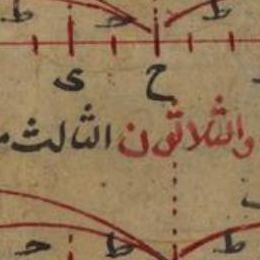 ط ط ط
ح ى
والثلاثون الثالث
ط ط ح